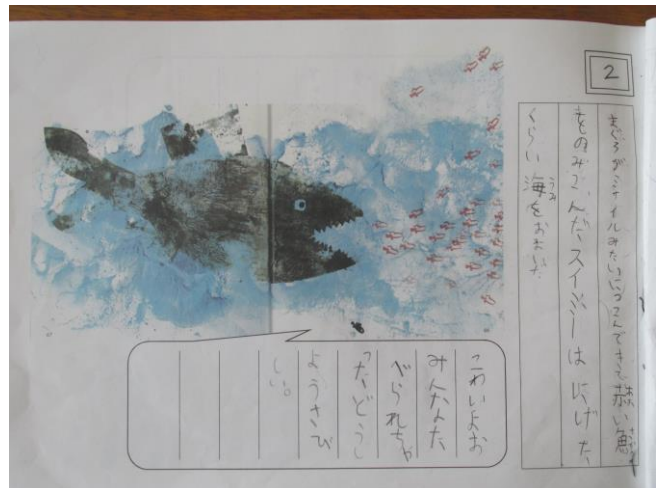 2
まぐろがミサイルみたいにつっこんできて赤い魚
をのみこんだスイミーはにげた
くらい海をおよいだ
うみ
こわいよお
みんなた
べられちゃ
ったどうし
ようさび
しい。